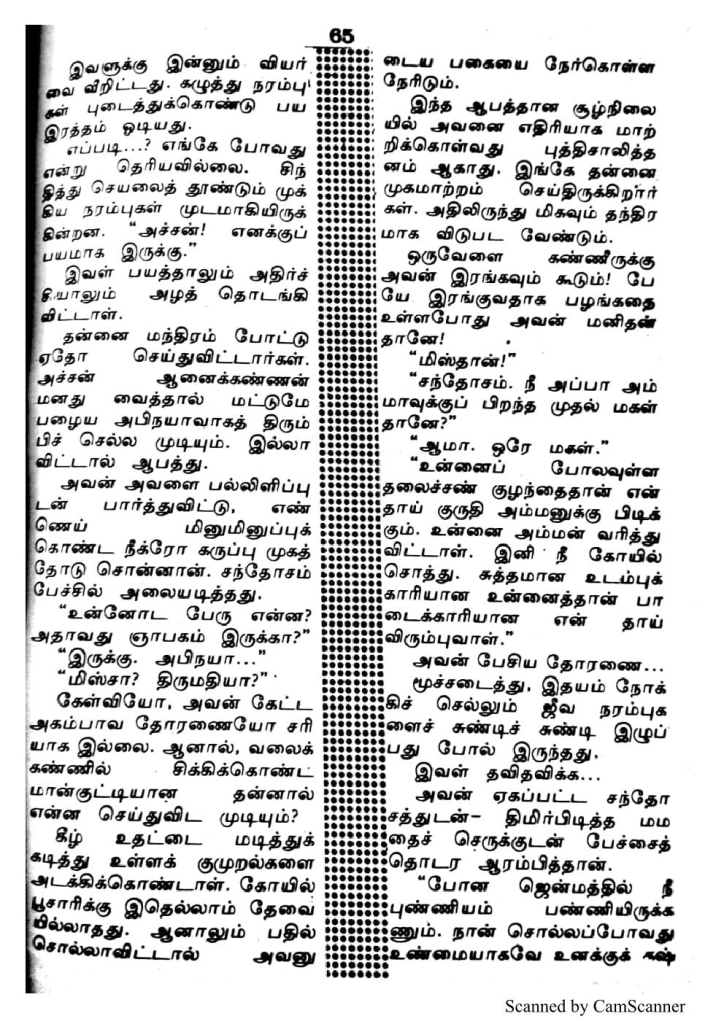 65
இவளுக்கு இன்னும் வியர்
வை வீறிட்டது. கழுத்து நரம்பு
கள் புடைத்துக்கொண்டு பய
இரத்தம் ஓடியது.
எப்படி...? எங்கே போவது
என்று தெரியவில்லை. சிந்
தித்து செயலைத் தூண்டும் முக்
கிய நரம்புகள் முடமாகியிருக்
கின்றன. “அச்சன்! எனக்குப்
பயமாக இருக்கு.”
இவள் பயத்தாலும் அதிர்ச்
சியாலும் அழத் தொடங்கி
விட்டாள்.
தன்னை மந்திரம் போட்டு
ஏதோ செய்துவிட்டார்கள்.
அச்சன் ஆனைக்கண்ணன்
மனது வைத்தால் மட்டுமே
பழைய அபிநயாவாகத் திரும்
பிச் செல்ல முடியும். இல்லா
விட்டால் ஆபத்து.
அவன் அவளை பல்லிளிப்பு
டன் பார்த்துவிட்டு, எண்
ணெய் மினுமினுப்புக்
கொண்ட நீக்ரோ கருப்பு முகத்
தோடு சொன்னான். சந்தோசம்
பேச்சில் அலையடித்தது.
“உன்னோட பேரு என்ன?
அதாவது ஞாபகம் இருக்கா?”
“இருக்கு. அபிநயா...”
“மிஸ்சா? திருமதியா?”
கேள்வியோ, அவன் கேட்ட
அகம்பாவ தோரணையோ சரி
யாக இல்லை. ஆனால், வலைக்
கண்ணில் சிக்கிக்கொண்ட
மான்குட்டியான தன்னால்
என்ன செய்துவிட முடியும்?
கீழ் உதட்டை மடித்துக்
கடித்து உள்ளக் குமுறல்களை
அடக்கிக்கொண்டாள். கோயில்
பூசாரிக்கு இதெல்லாம் தேவை
யில்லாதது. ஆனாலும் பதில்
சொல்லாவிட்டால் அவனு
டைய பகையை நேர்கொள்ள
நேரிடும்.
இந்த ஆபத்தான சூழ்நிலை
யில் அவனை எதிரியாக மாற்
றிக்கொள்வது புத்திசாலித்த
னம் ஆகாது. இங்கே தன்னை
முகமாற்றம் செய்திருக்கிறார்
கள். அதிலிருந்து மிகவும் தந்திர
மாக விடுபட வேண்டும்.
ஒருவேளை கண்ணீருக்கு
அவன் இரங்கவும் கூடும்! பே
யே இரங்குவதாக பழங்கதை
உள்ளபோது அவன் மனிதன்
தானே!
“மிஸ்தான்!”
“சந்தோசம். நீ அப்பா அம்
மாவுக்குப் பிறந்த முதல் மகள்
தானே?”
“ஆமா. ஒரே மகள்.”
“உன்னைப் போலவுள்ள
தலைச்சண் குழந்தைதான் என்
தாய் குருதி அம்மனுக்கு பிடிக்
கும். உன்னை அம்மன் வரித்து
விட்டாள். இனி நீ கோயில்
சொத்து. சுத்தமான உடம்புக்
காரியான உன்னைத்தான் பா
டைக்காரியான என் தாய்
விரும்புவாள்.”
அவன் பேசிய தோரணை...
மூச்சடைத்து, இதயம் நோக்
கிச் செல்லும் ஜீவ நரம்புக
ளைச் சுண்டிச் சுண்டி இழுப்
பது போல் இருந்தது.
இவள் தவிதவிக்க...
அவன் ஏகப்பட்ட சந்தோ
சத்துடன்- திமிர்பிடித்த மம
தைச் செருக்குடன் பேச்சைத்
தொடர ஆரம்பித்தான்.
“போன ஜென்மத்தில் நீ
புண்ணியம் பண்ணியிருக்க
ணும். நான் சொல்லப்போவது
உண்மையாகவே உனக்குக் கஷ்
Scanned by CamScanner